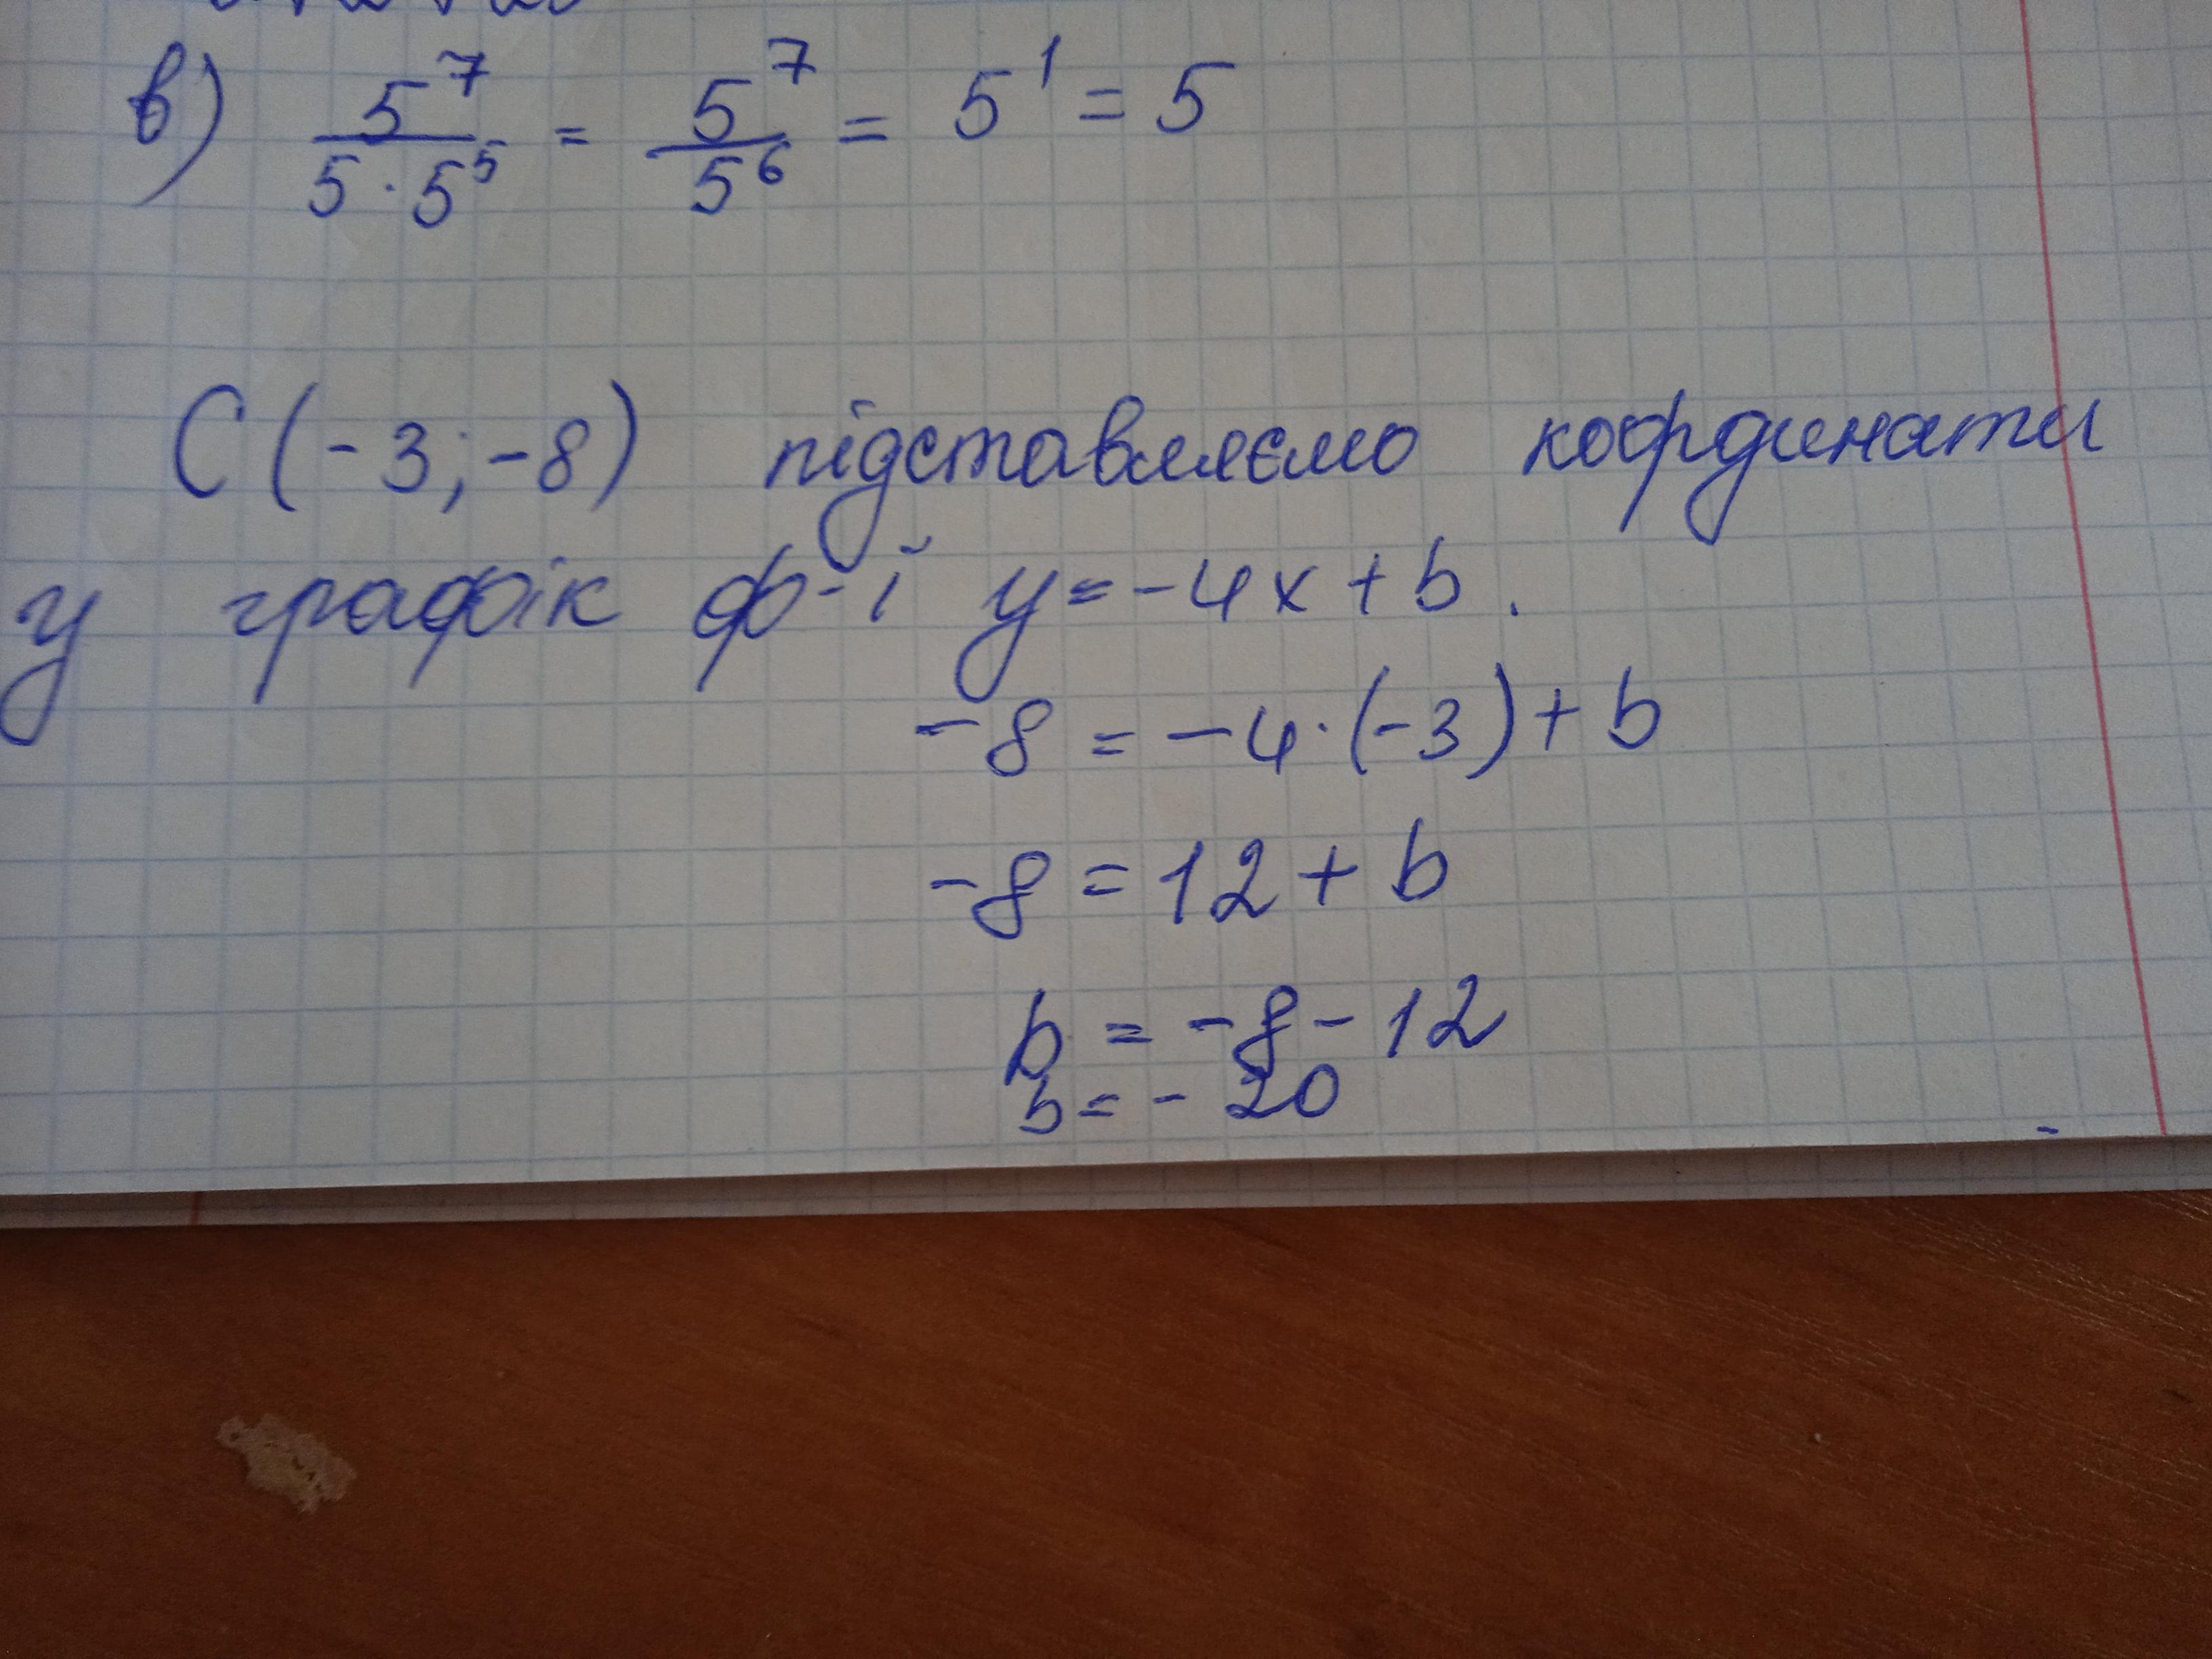 в) 5⁷/(5·5⁵) = 5⁷/5⁶ = 5¹ = 5
C(-3;-8) підставляємо кофрдинати
у графік ф-ї y=-4x+b.
-8 = -4·(-3)+b
-8 = 12+b
b = -8-12
b = -20